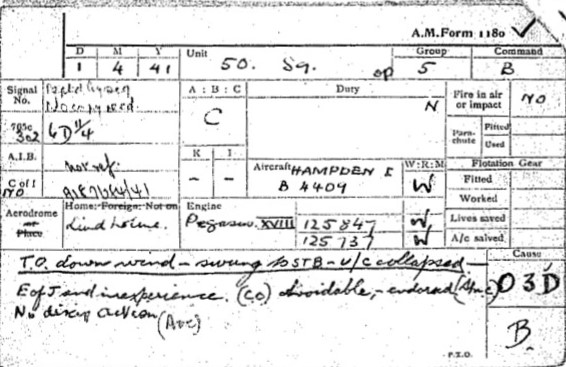 A.M. Form 1180
D M Y Unit Group Command
1 4 41 50. Sq. op 5 B
Signal No.
A : B : C Duty
C N
Fire in air or impact NO
765c 302 6D 11/4
Parachute Fitted Used
A.I.B. not ref:
K I
- -
Aircraft HAMPDEN I
B 4409
W:R:M
W
Flotation Gear
Fitted
Worked
C of I
NO
Aerodrome or Place
Home: Foreign: Not on
Lindholme.
Engine
Pegasus XVIII 125847 W
125737 W
Lives saved
A/c salved
T.O. down wind - swung to STB - U/C collapsed -
E of J and inexperience. (CO) Avoidable, - endorsed
No discip action (AOC)
Cause
03D
B.
P.T.O.